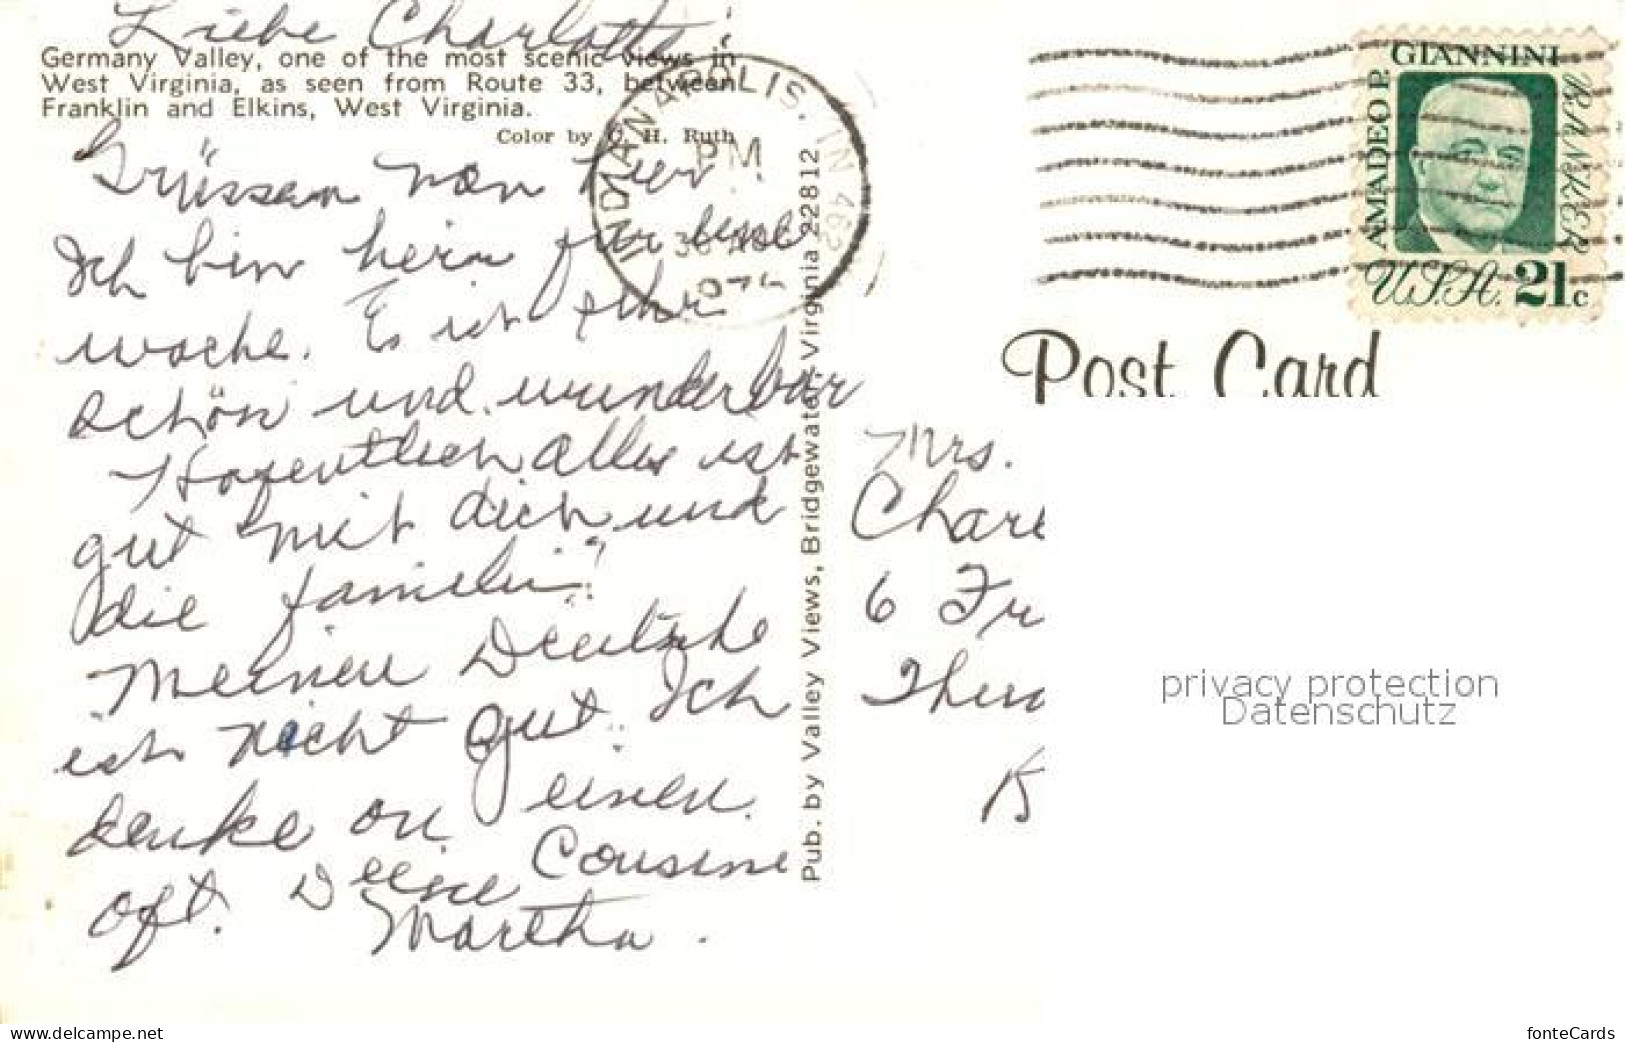 Liebe Charlotte!
Germany Valley, one of the most scenic views in
West Virginia, as seen from Route 33, between
Franklin and Elkins, West Virginia.
Color by C. H. Ruth
Grüssen von hier
Ich bin heir für eine
woche. Es ist sehr
schön und wunderbar
Hofentlich alles ist
gut mit dich und
die familie.
Meinen Deutsche
ist nicht gut. Ich
denke on einen
oft. Deine Cousine
Martha.
INDIANAPOLIS, IN 462
PM
30
Pub. by Valley Views, Bridgewater, Virginia 22812
AMADEO P. GIANNINI BANKER
U.S.A. 21c
Post Card
Mrs.
Charl
6 Fr
K
privacy protection
Datenschutz
www.delcampe.net
fonteCards